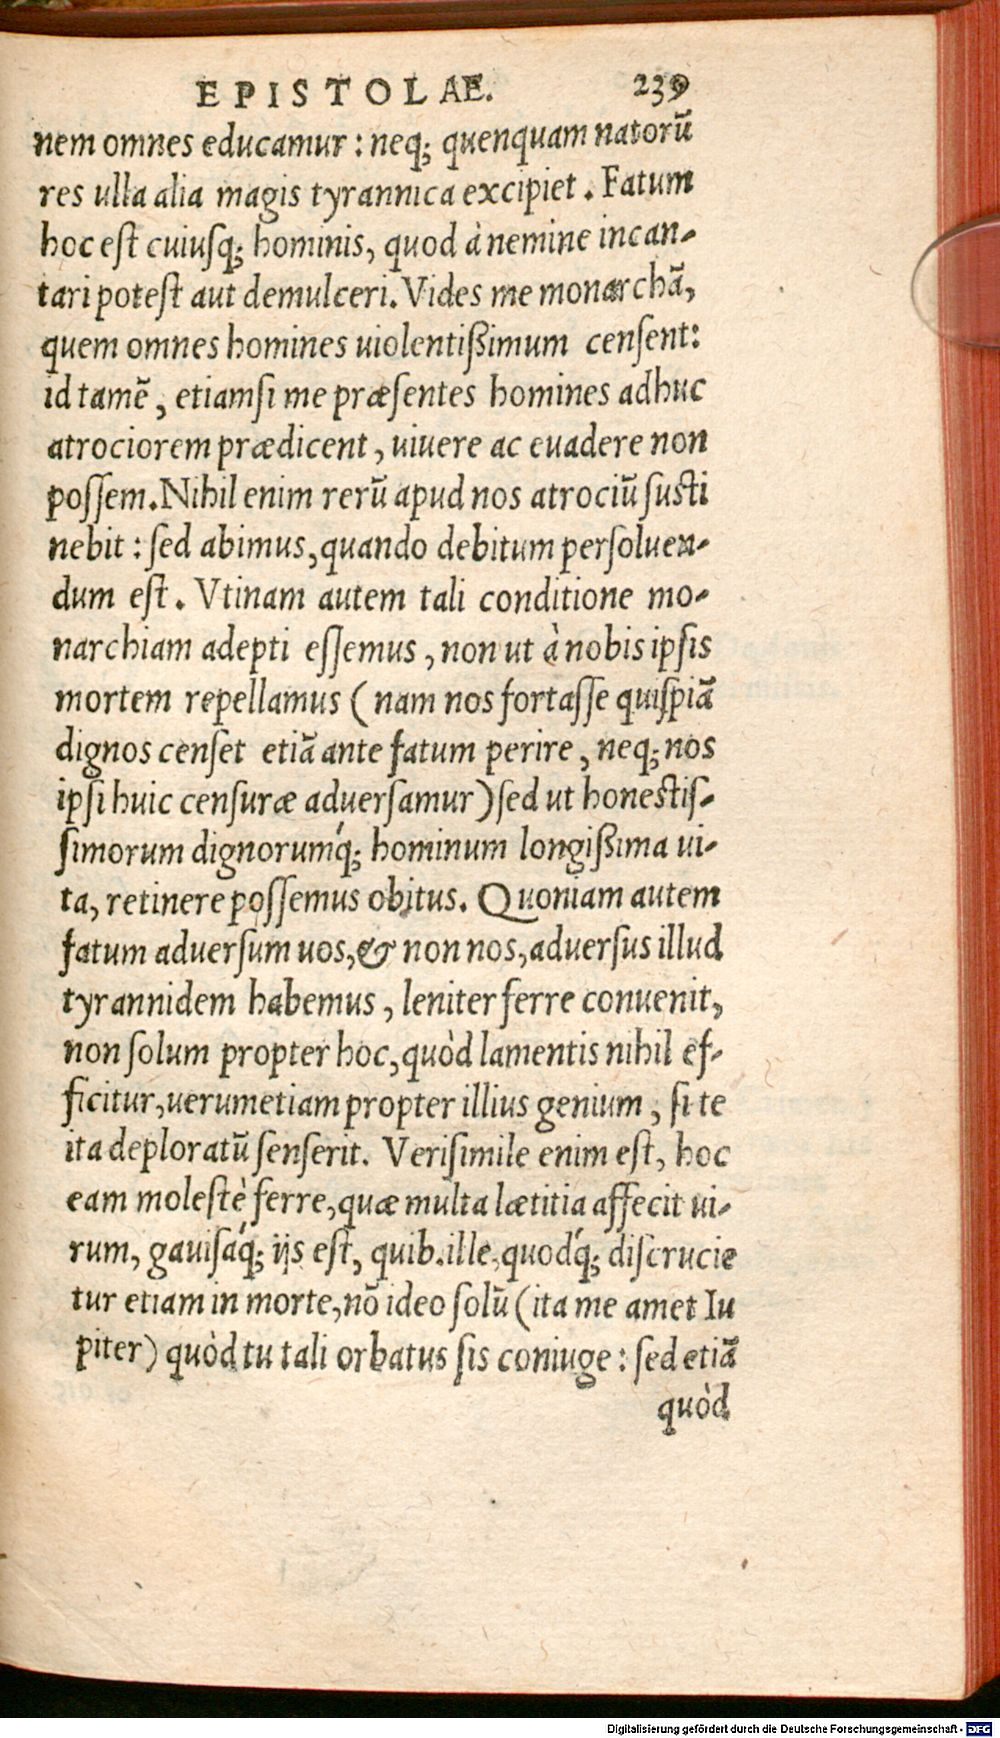 EPISTOLAE. 239
nem omnes educamur : neq; quenquam natorū
res ulla alia magis tyrannica excipiet . Fatum
hoc est cuiusq; hominis, quod à nemine incan-
tari potest aut demulceri. Vides me monarchā,
quem omnes homines uiolentißimum censent:
id tamē, etiamsi me præsentes homines adhuc
atrociorem prædicent, uiuere ac euadere non
possem. Nihil enim rerū apud nos atrociū susti
nebit : sed abimus, quando debitum persoluen-
dum est. Vtinam autem tali conditione mo-
narchiam adepti essemus, non ut à nobis ipsis
mortem repellamus ( nam nos fortasse quispiā
dignos censet etiā ante fatum perire, neq; nos
ipsi huic censuræ aduersamur) sed ut honestis-
simorum dignorumq́; hominum longißima ui-
ta, retinere possemus obitus. Quoniam autem
fatum aduersum uos, & non nos, aduersus illud
tyrannidem habemus, leniter ferre conuenit,
non solum propter hoc, quòd lamentis nihil ef-
ficitur, uerumetiam propter illius genium, si te
ita deploratū senserit. Verisimile enim est, hoc
eam molestè ferre, quæ multa lætitia affecit ui-
rum, gauisaq́; ijs est, quib. ille, quodq́; discrucie
tur etiam in morte, nō ideo solū (ita me amet Iu
piter) quòd tu tali orbatus sis coniuge : sed etiā
quòd
Digitalisierung gefördert durch die Deutsche Forschungsgemeinschaft - DFG